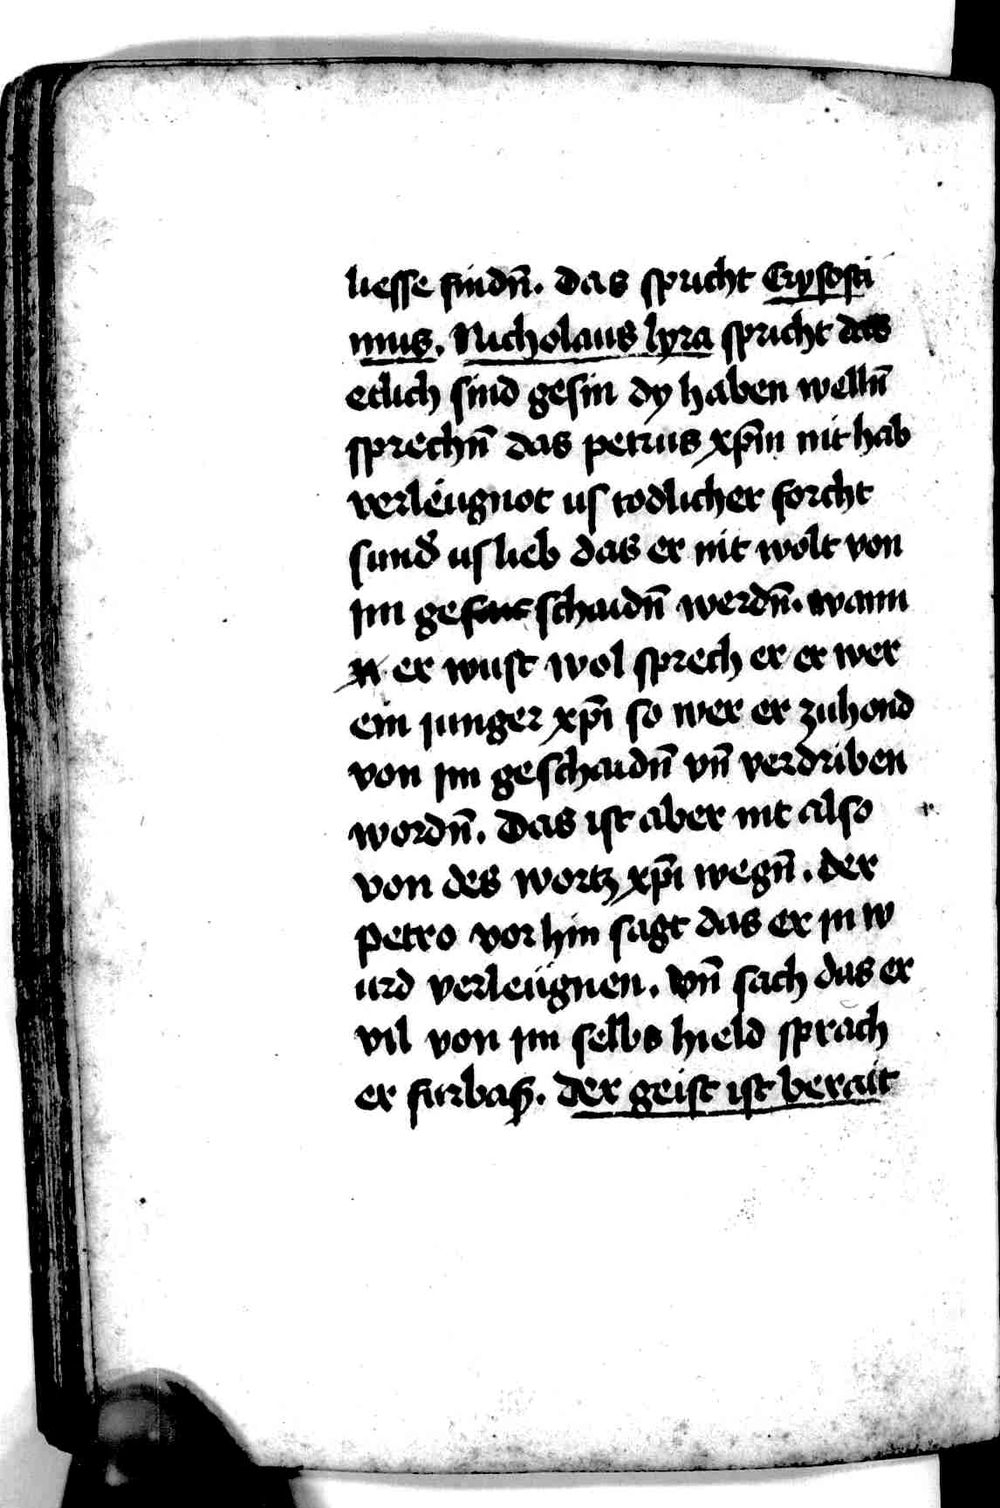 liesse findn̄. Das spricht Crysosti
mus. Nicholaus lyra spricht das
etlich sind gesin dy haben welln̄
sprechn̄ das petrus xp̄m nit hab
verleugnot us todlicher forcht
sund̄ us lieb das er nit wolt von
im ge schaidn̄ werdn̄. wann
er wust wol sprech er er wer
ein junger xp̄i so wer er zuhond
von im geschaidn̄ vn̄ verdriben
wordn̄. Das ist aber nit also
von des wortz xp̄i wegn̄. der
petro vorhin sagt das er in w
urd verleügnen. vn̄ sach das er
vil von im selbs hield sprach
er furbaß. der geist ist berait